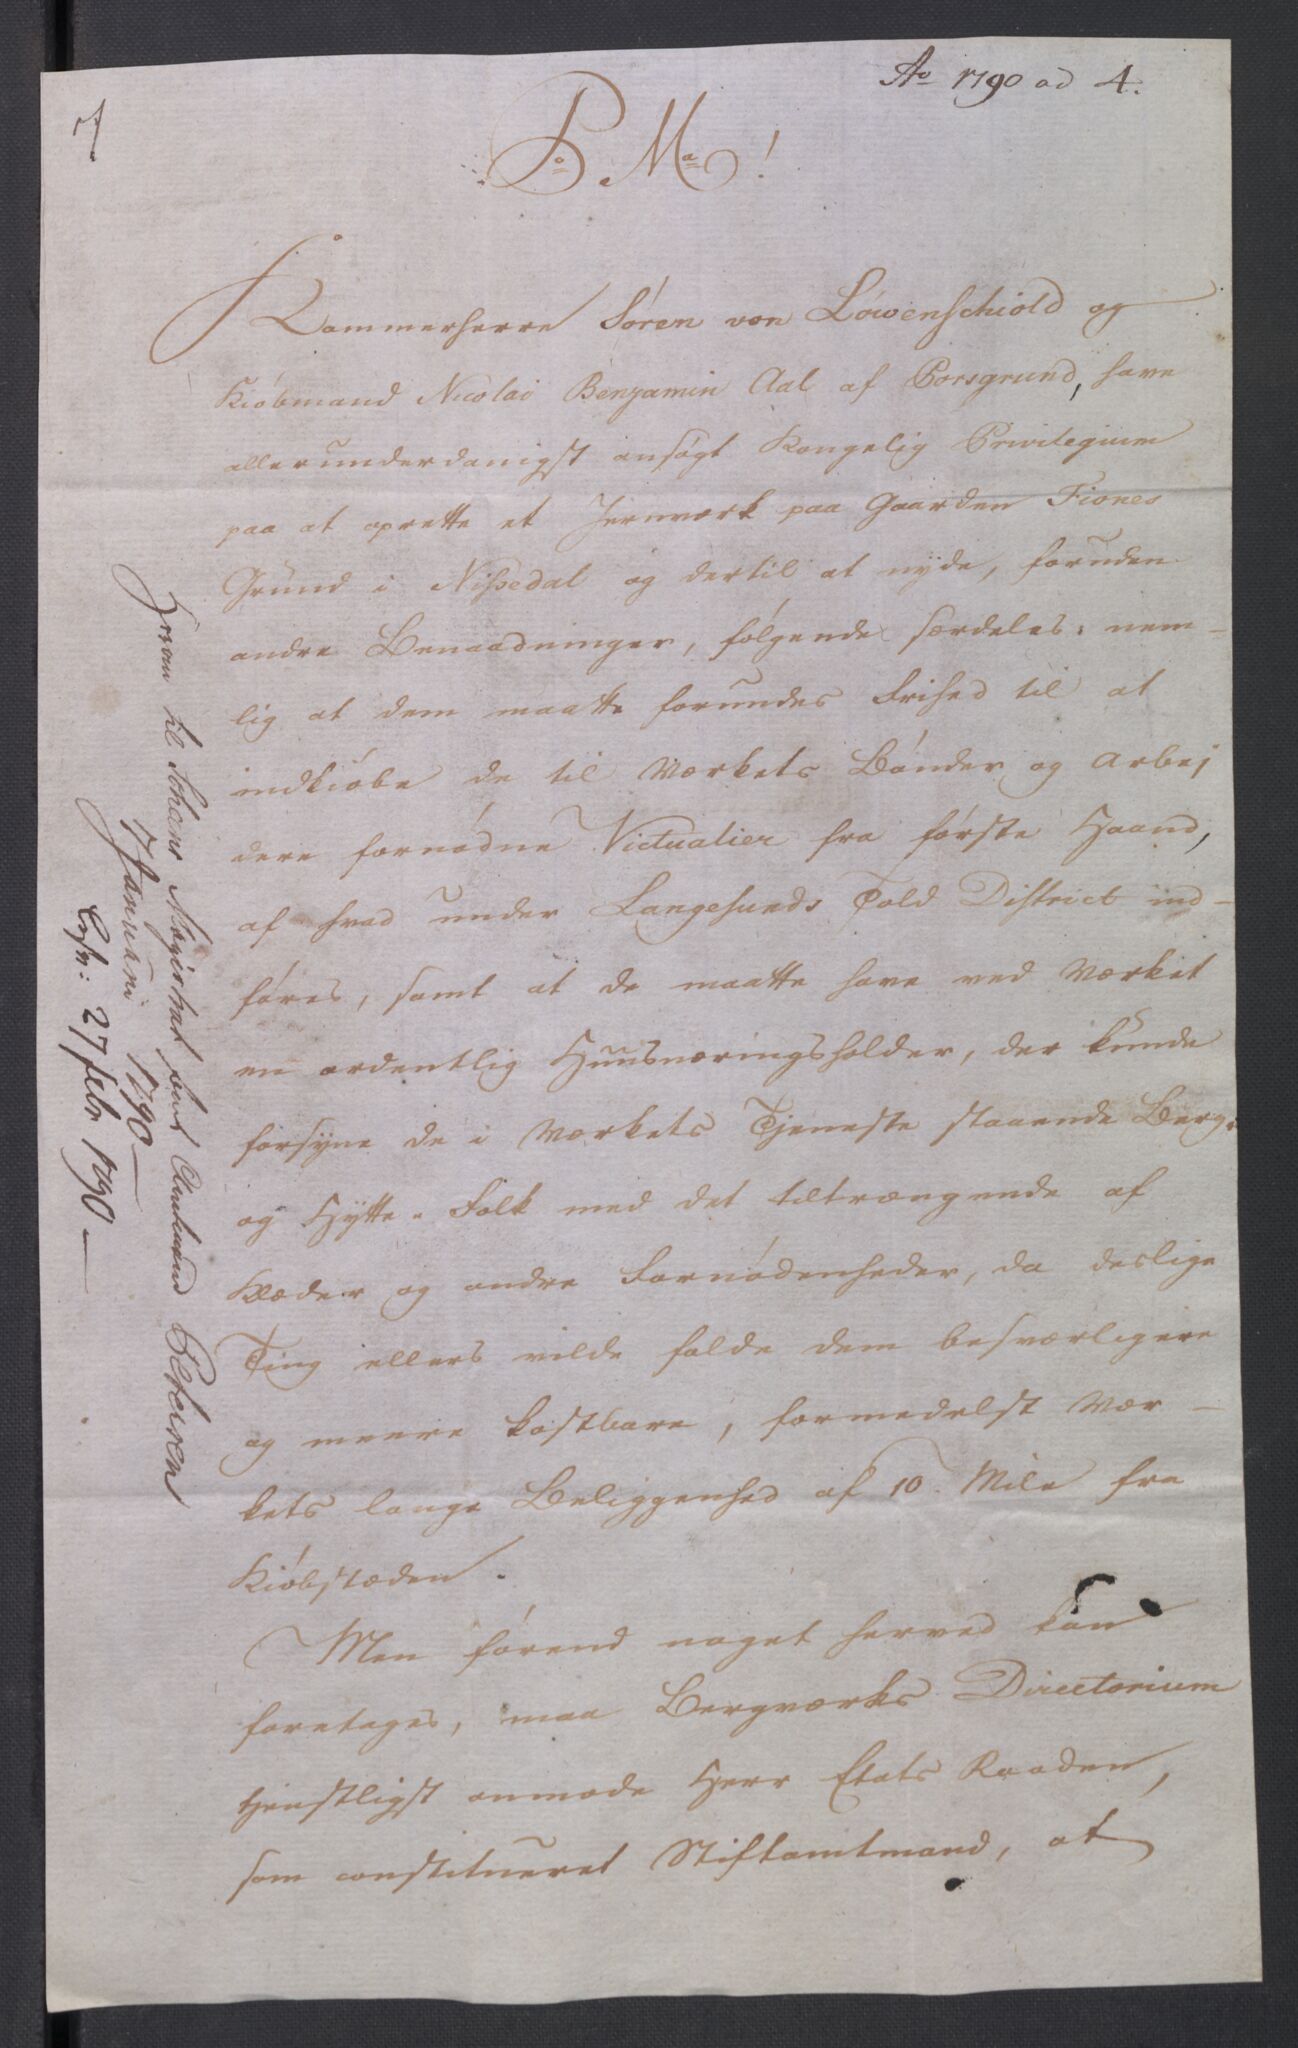 Ao 1790 ad 4.
P.o M.a!
Kammerherre Søren von Løvenschiold og
Kiøbmand Nicolai Benjamin Aal af Porsgrund, have
allerunderdanigst ansøgt Kongelig Privilegium
paa at oprette et Jernværk paa Gaarden Fiones
Grund i Nissedal og dertil at nyde, foruden
andre Benaadninger, følgende særdeles: nem-
lig at dem maatte forundes Frihed til at
indkiøbe de til Værkets Bønder og Arbej
dere fornødne Victualier fra første Haand,
af hvad under Langesunds Told District ind-
føres, samt at de maatte have ved Værket
en ordentlig Huusnæringsholder, der kunde
forsyne de i Værkets Tjeneste staaende Berg-
og Hytte-Folk med det tiltrængende af
Klæder og andre Fornødenheder, da deslige
Ting ellers vilde falde dem besværligere
og meere kostbare, formedelst Vær-
kets lange Beliggenhed af 10 Mile fra
Kiøbstæden.
Men førend noget herved kan
foretages, maa Bergværks Directorium
tjenstligst anmode Herr Etats Raaden,
som constitueret Stiftamtmand, at
til Johans Amtmand Petersen
7 Januarii 1790
27 febr 1790